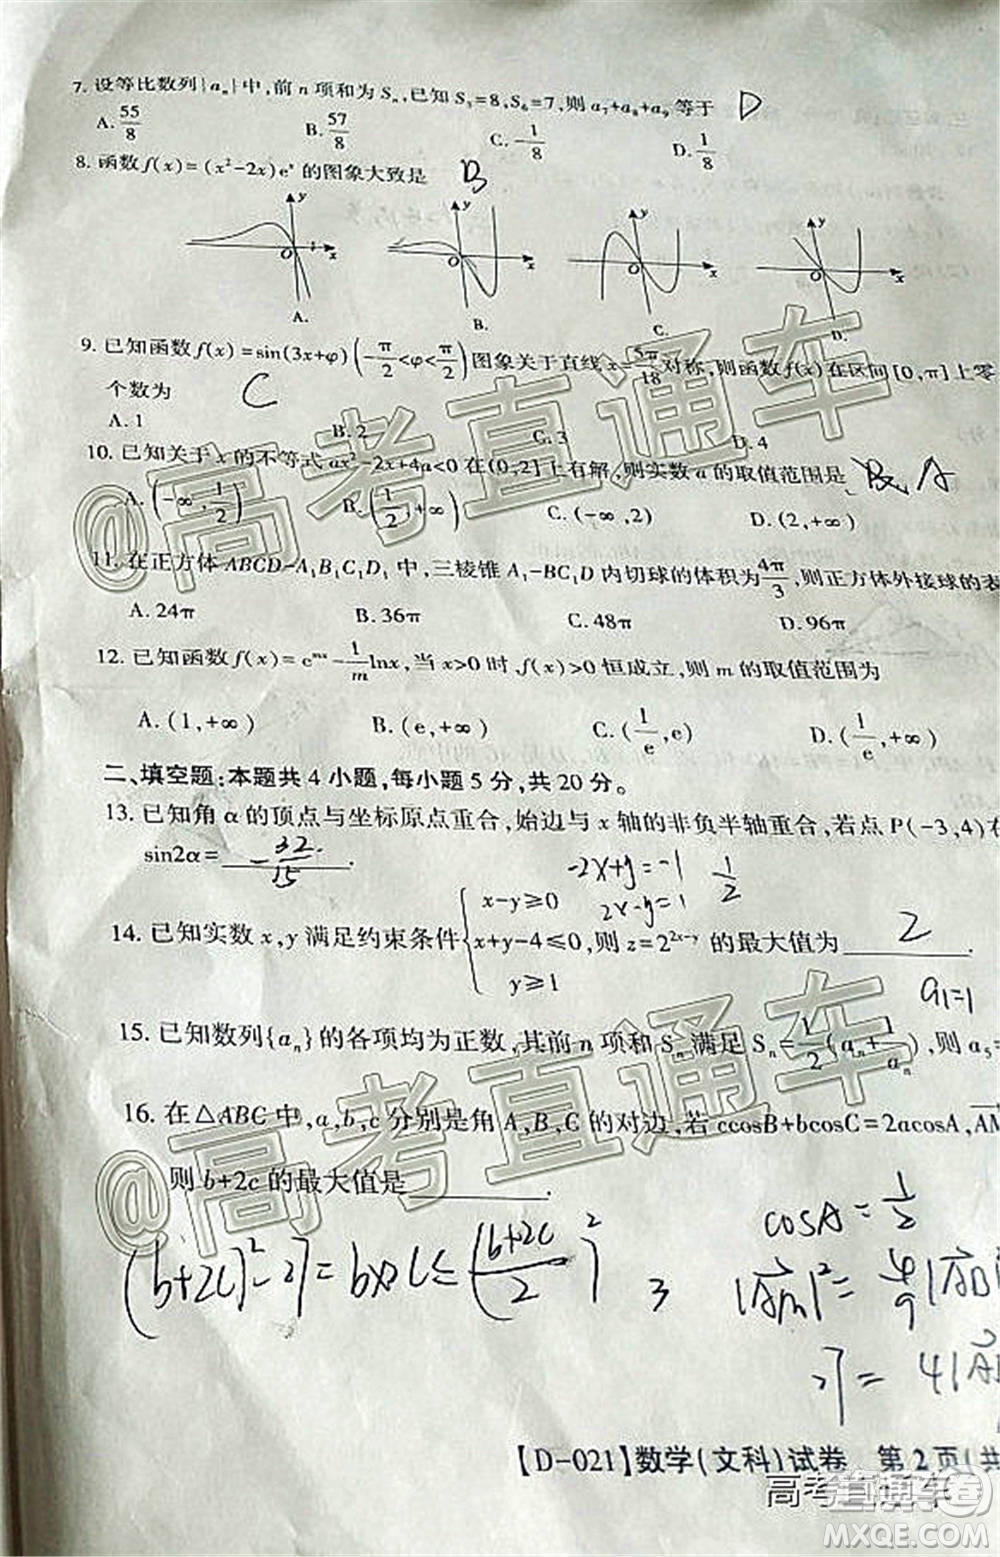 7. 设等比数列{aₙ}中,前 n 项和为 Sₙ,已知 S₃=8,S₆=7,则 a₇+a₈+a₉ 等于 D
A. 55/8 B. 57/8 C. -1/8 D. 1/8
8. 函数 f(x)=(x²-2x)eˣ 的图象大致是 B
y y y y
O x O x O x O
A. B. C. D.
9. 已知函数 f(x)=sin(3x+φ)(-π/2<φ<π/2)图象关于直线 x=5π/18 对称,则函数 f(x)在区间[0,π]上零
个数为 C
A. 1 B. 2 C. 3 D. 4
10. 已知关于 x 的不等式 ax²-2x+4a<0 在(0,2]上有解,则实数 a 的取值范围是 A
A. (-∞,1/2) B. (1/2,+∞) C. (-∞,2) D. (2,+∞)
11. 在正方体 ABCD-A₁B₁C₁D₁ 中,三棱锥 A₁-BC₁D 内切球的体积为 4π/3,则正方体外接球的表
A. 24π B. 36π C. 48π D. 96π
12. 已知函数 f(x)=eᵐˣ-1/m lnx,当 x>0 时,f(x)>0 恒成立,则 m 的取值范围为
A. (1,+∞) B. (e,+∞) C. (1/e,e) D. (1/e,+∞)
二、填空题:本题共 4 小题,每小题 5 分,共 20 分。
13. 已知角 α 的顶点与坐标原点重合,始边与 x 轴的非负半轴重合,若点 P(-3,4)在
sin2α= -32/15 .
-2x+y=-1 1/2
2x-y=1
14. 已知实数 x,y 满足约束条件{x-y≥0 x+y-4≤0 y≥1,则 z=2²ˣ⁻ʸ 的最大值为 2 .
a₁=1
15. 已知数列{aₙ}的各项均为正数,其前 n 项和 Sₙ 满足 Sₙ=1/2(aₙ+1/aₙ),则 a₅=
16. 在△ABC 中,a,b,c 分别是角 A,B,C 的对边,若 ccosB+bcosC=2acosA,AM
则 b+2c 的最大值是 .
cosA=1/2
(b+2c)²-27=6×2c≤((b+2c)/2)² 3 |AM|²=4/9|AB|²
27=4|A
【D-021】数学(文科)试卷 第 2 页(共
@高考直通车
@高考直通车
高考直通车
答案圈
MXQE.COM